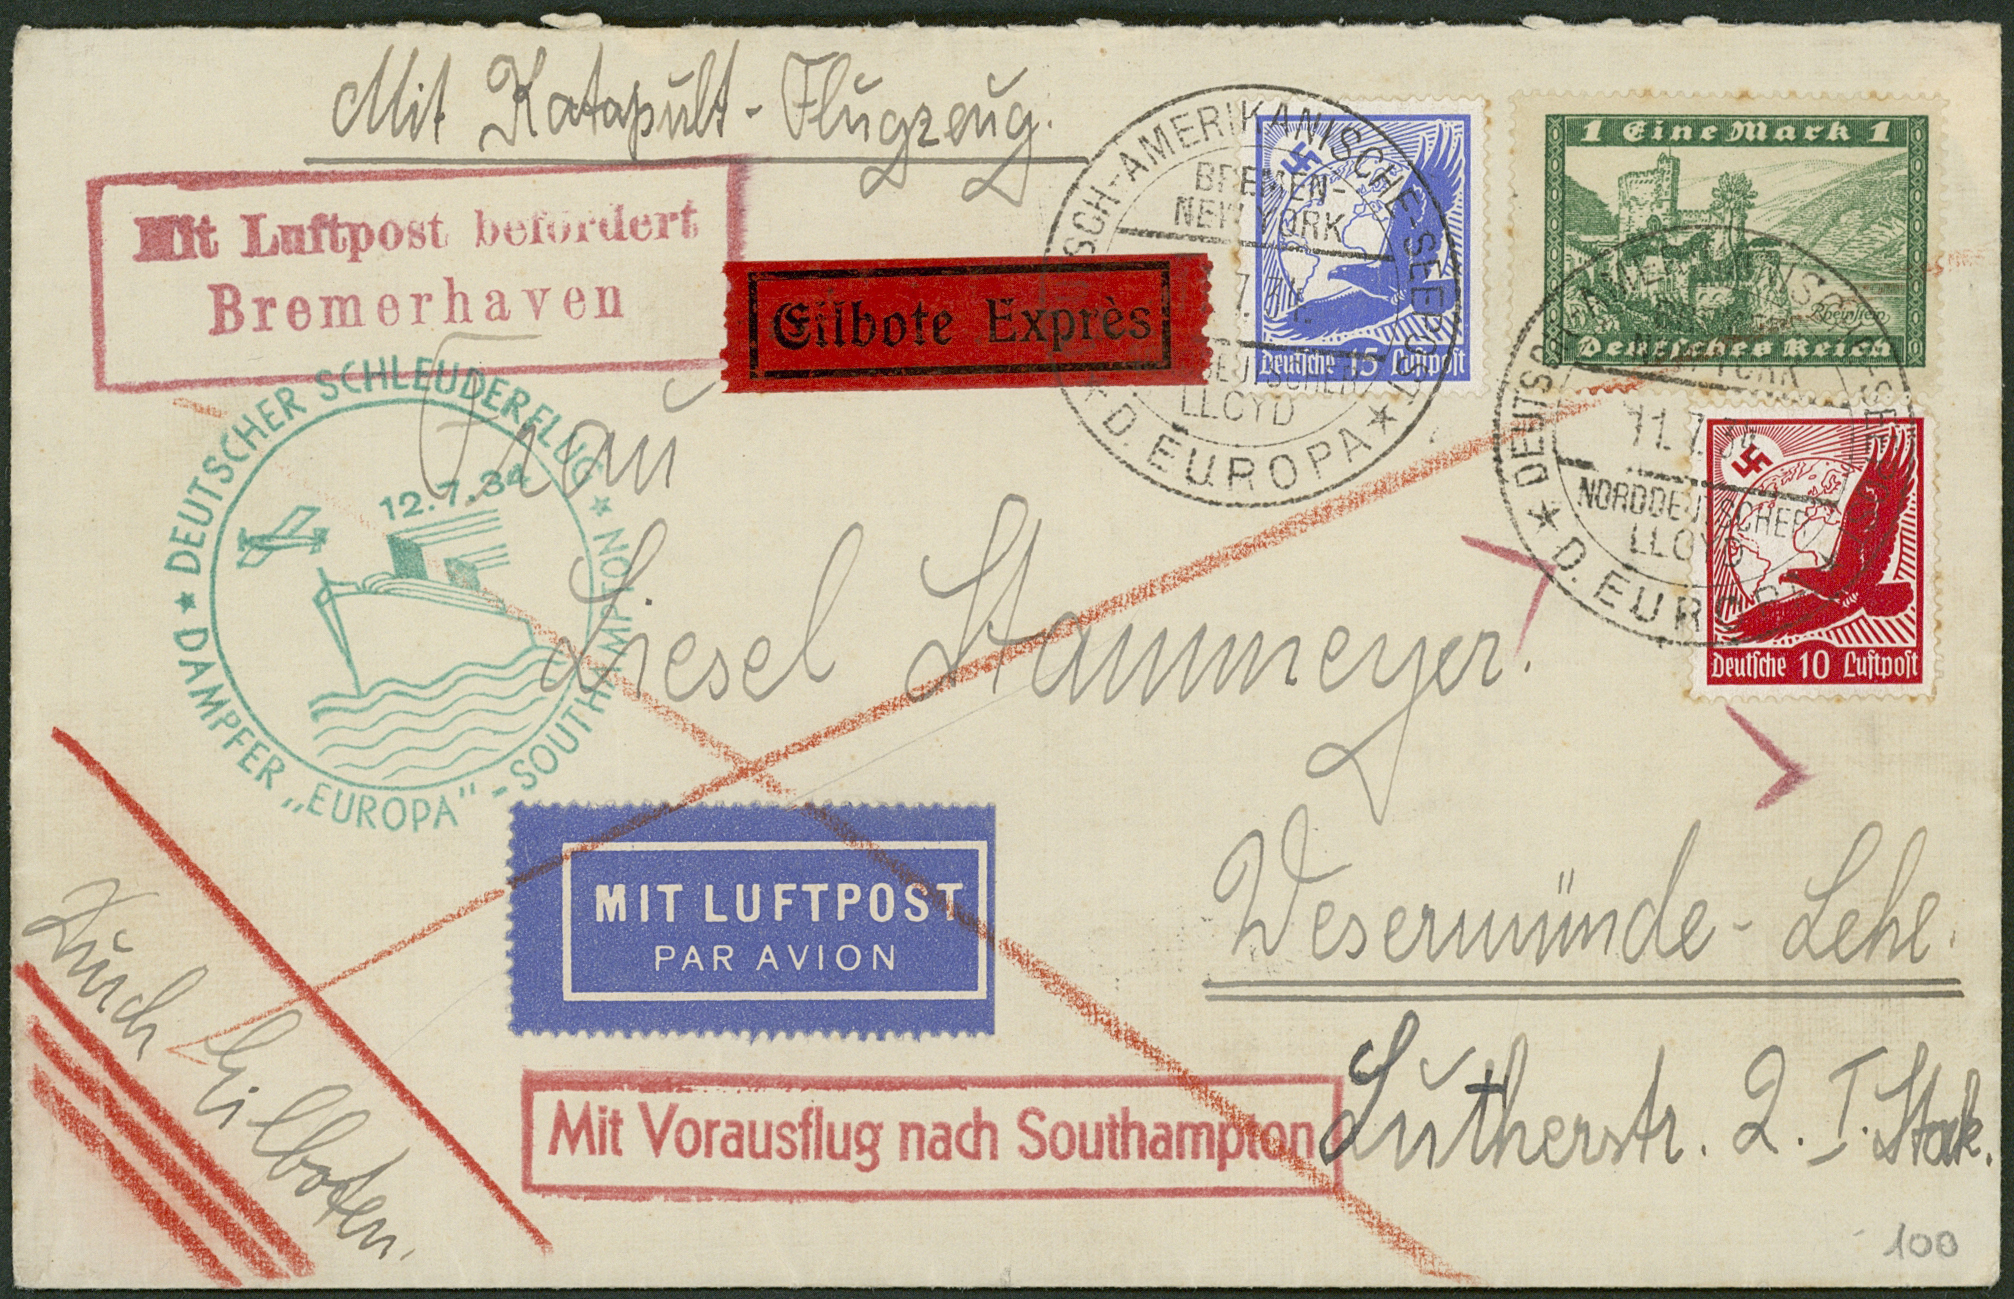 Mit Katapult-Flugzeug.
Mit Luftpost befördert
Bremerhaven
Eilbote Exprès
DEUTSCH-AMERIKANISCHE-SEEPOST
BREMEN-
NEW YORK
NORDDEUTSCHER
LLOYD
★ D. EUROPA ★
Deutsche 15 Luftpost
1 Eine Mark 1
Rheinstein
Deutsches Reich
DEUTSCH-AMERIKANISCHE-SEEPOST
NEW YORK
11.7.34
NORDDEUTSCHER
LLOYD
★ D. EUROPA ★
Deutsche 10 Luftpost
★ DEUTSCHER SCHLEUDERFLUG ★
12.7.34
DAMPFER „EUROPA" - SOUTHAMPTON
Frau
Liesel Stammeyer.
MIT LUFTPOST
PAR AVION
Wesermünde-Lehe.
Lutherstr. 2. I. Stock.
Durch Eilboten.
Mit Vorausflug nach Southampton
100